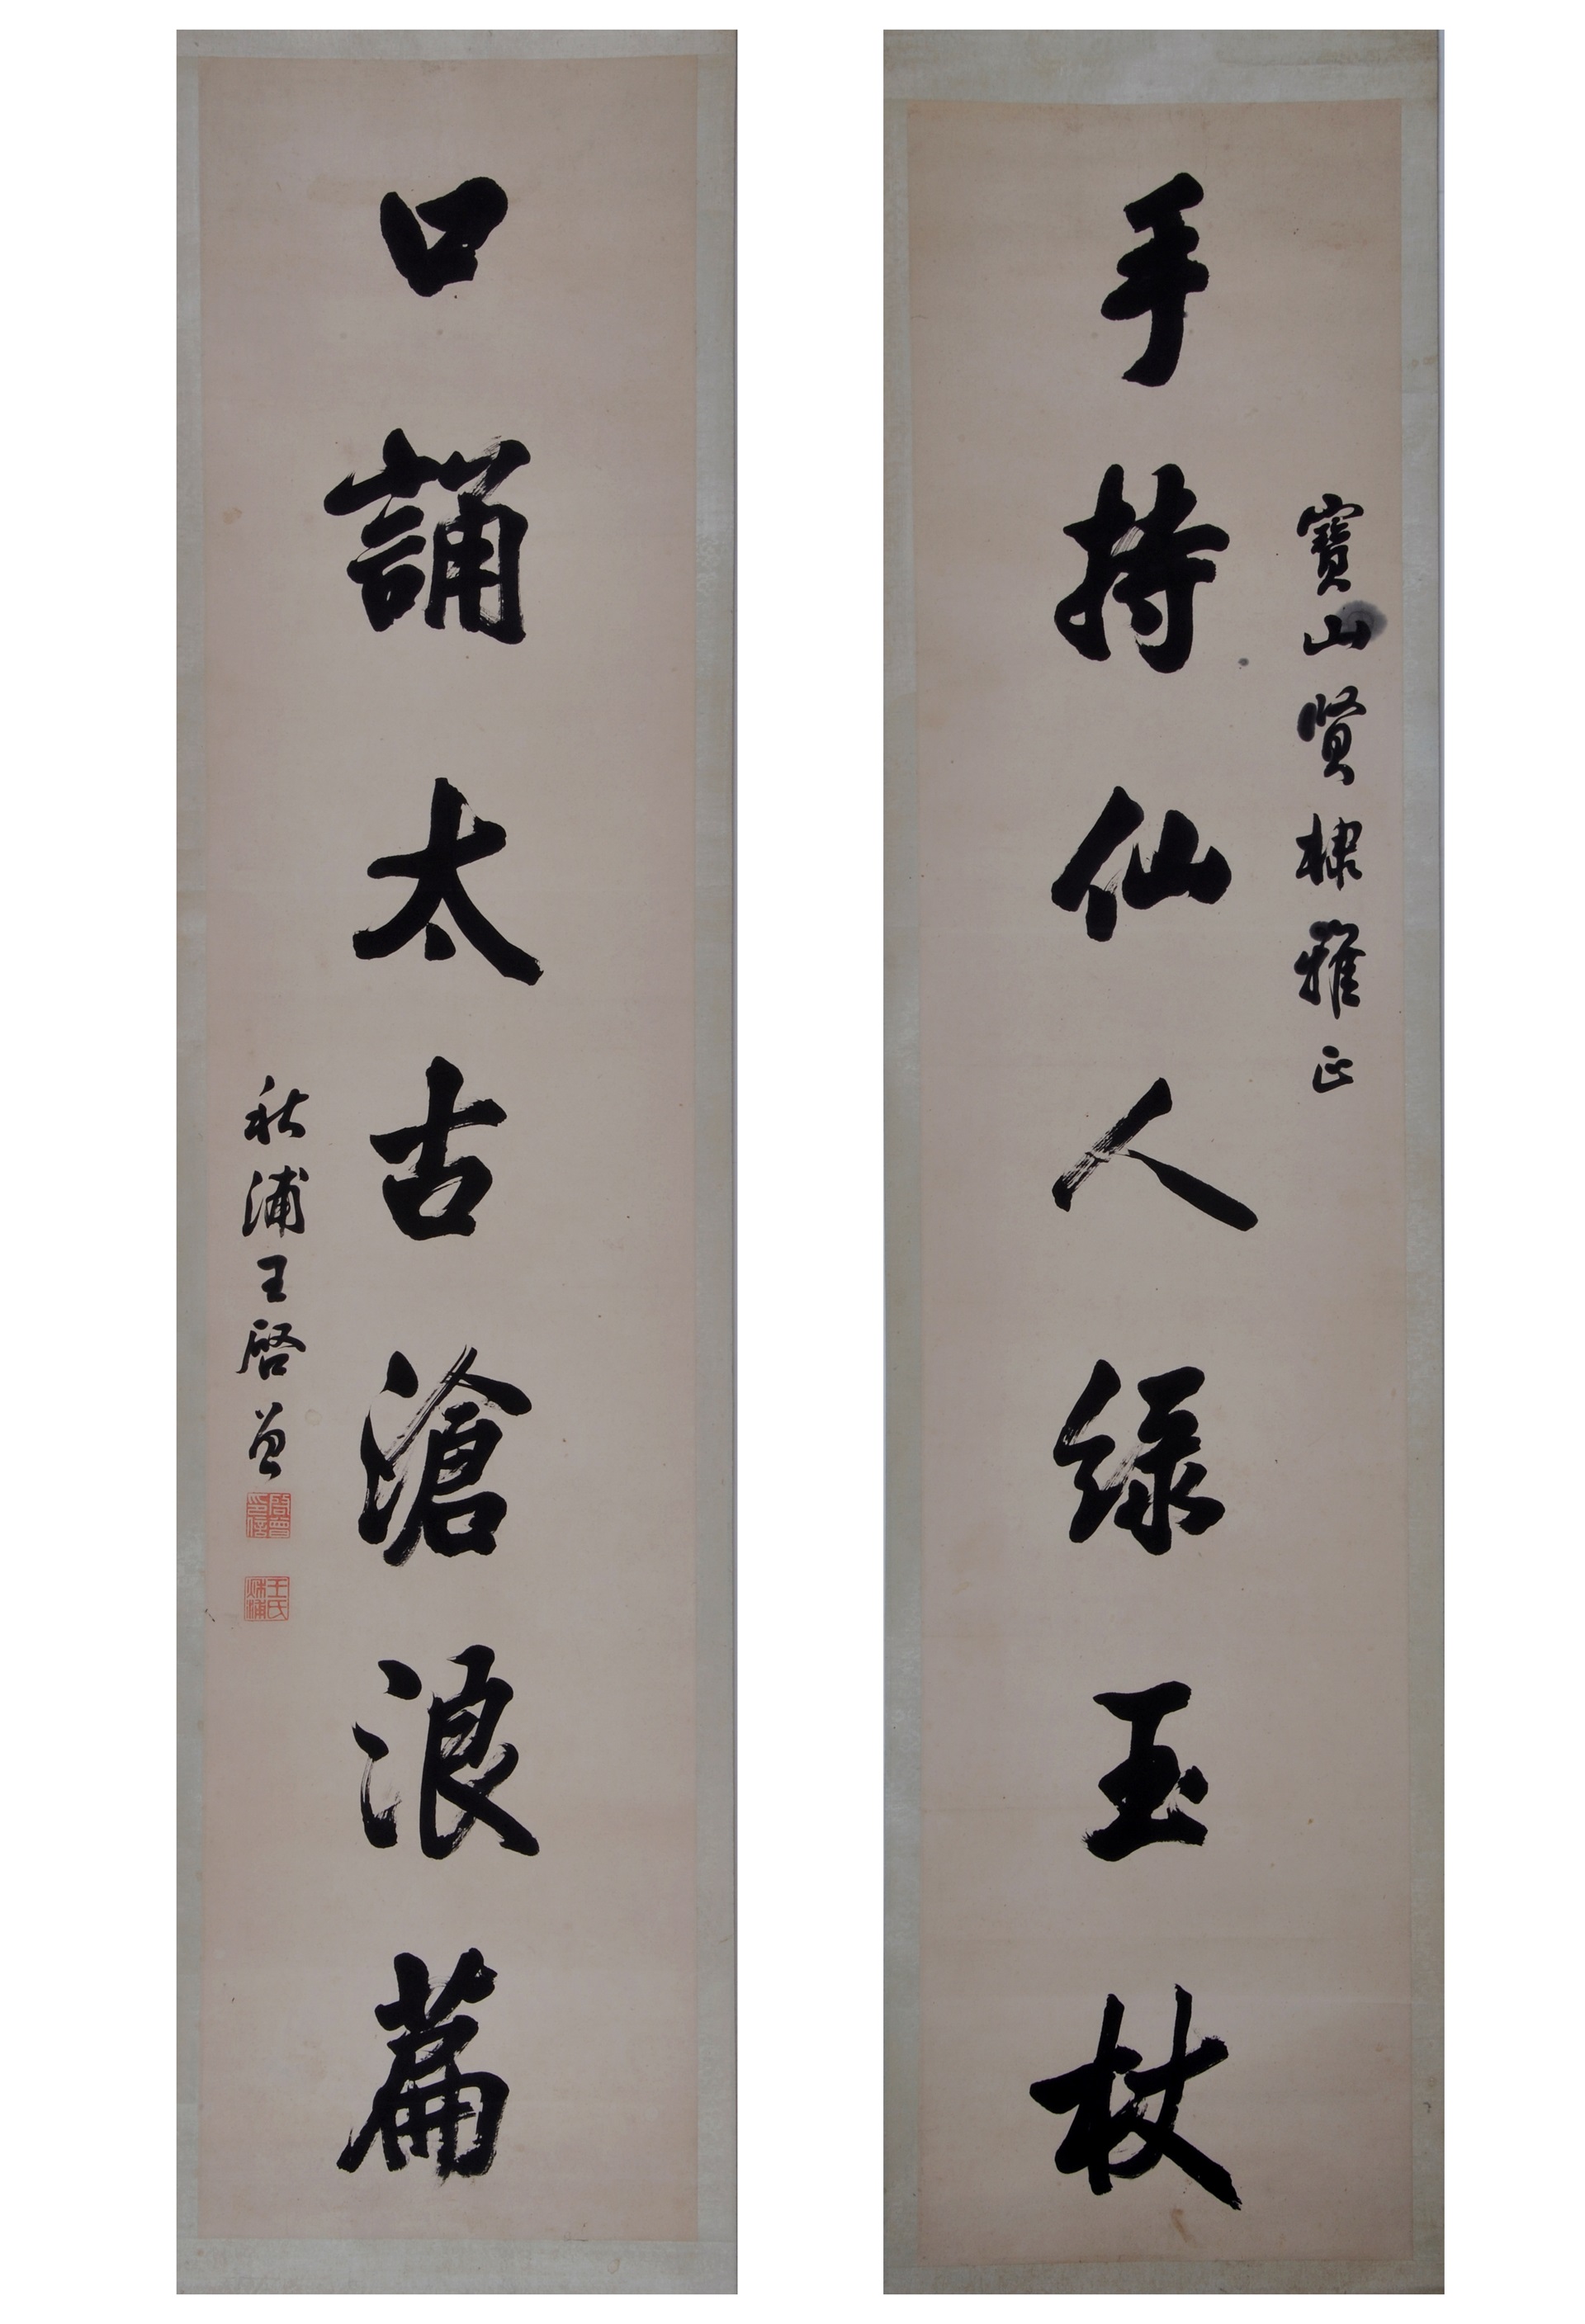 寶山賢棣雅正
手持仙人綠玉杖
口誦太古滄浪篇
秋浦王啓曾
啓曾印信
王氏秋浦